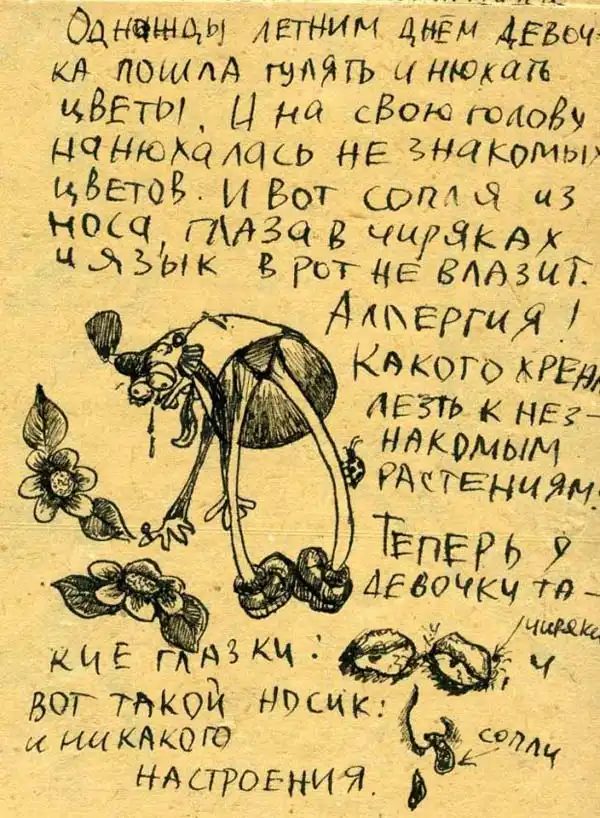 Однажды летним днём девоч-
ка пошла гулять и нюхать
цветы. И на свою голову
нанюхалась не знакомых
цветов. И вот сопля из
носа, глаза в чиряках
и язык в рот не влазит.
Аллергия!
Какого хрена
лезть к нез-
накомым
растениям.
Теперь у
девочки та-
чиряки
кие глазки: и
вот такой носик:
и никакого
сопли
настроения.